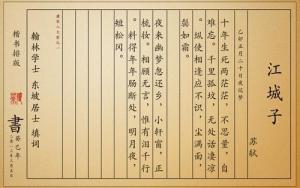 江城子
苏轼
乙卯正月二十日夜记梦
十年生死两茫茫，不思量，自
难忘。千里孤坟，无处话凄凉
。纵使相逢应不识，尘满面，
鬓如霜。
夜来幽梦忽还乡，小轩窗，正
梳妆。相顾无言，惟有泪千行
。料得年年肠断处，明月夜，
短松冈。
翰林学士 东坡居士 填词
楷书排版
書
癸巳年